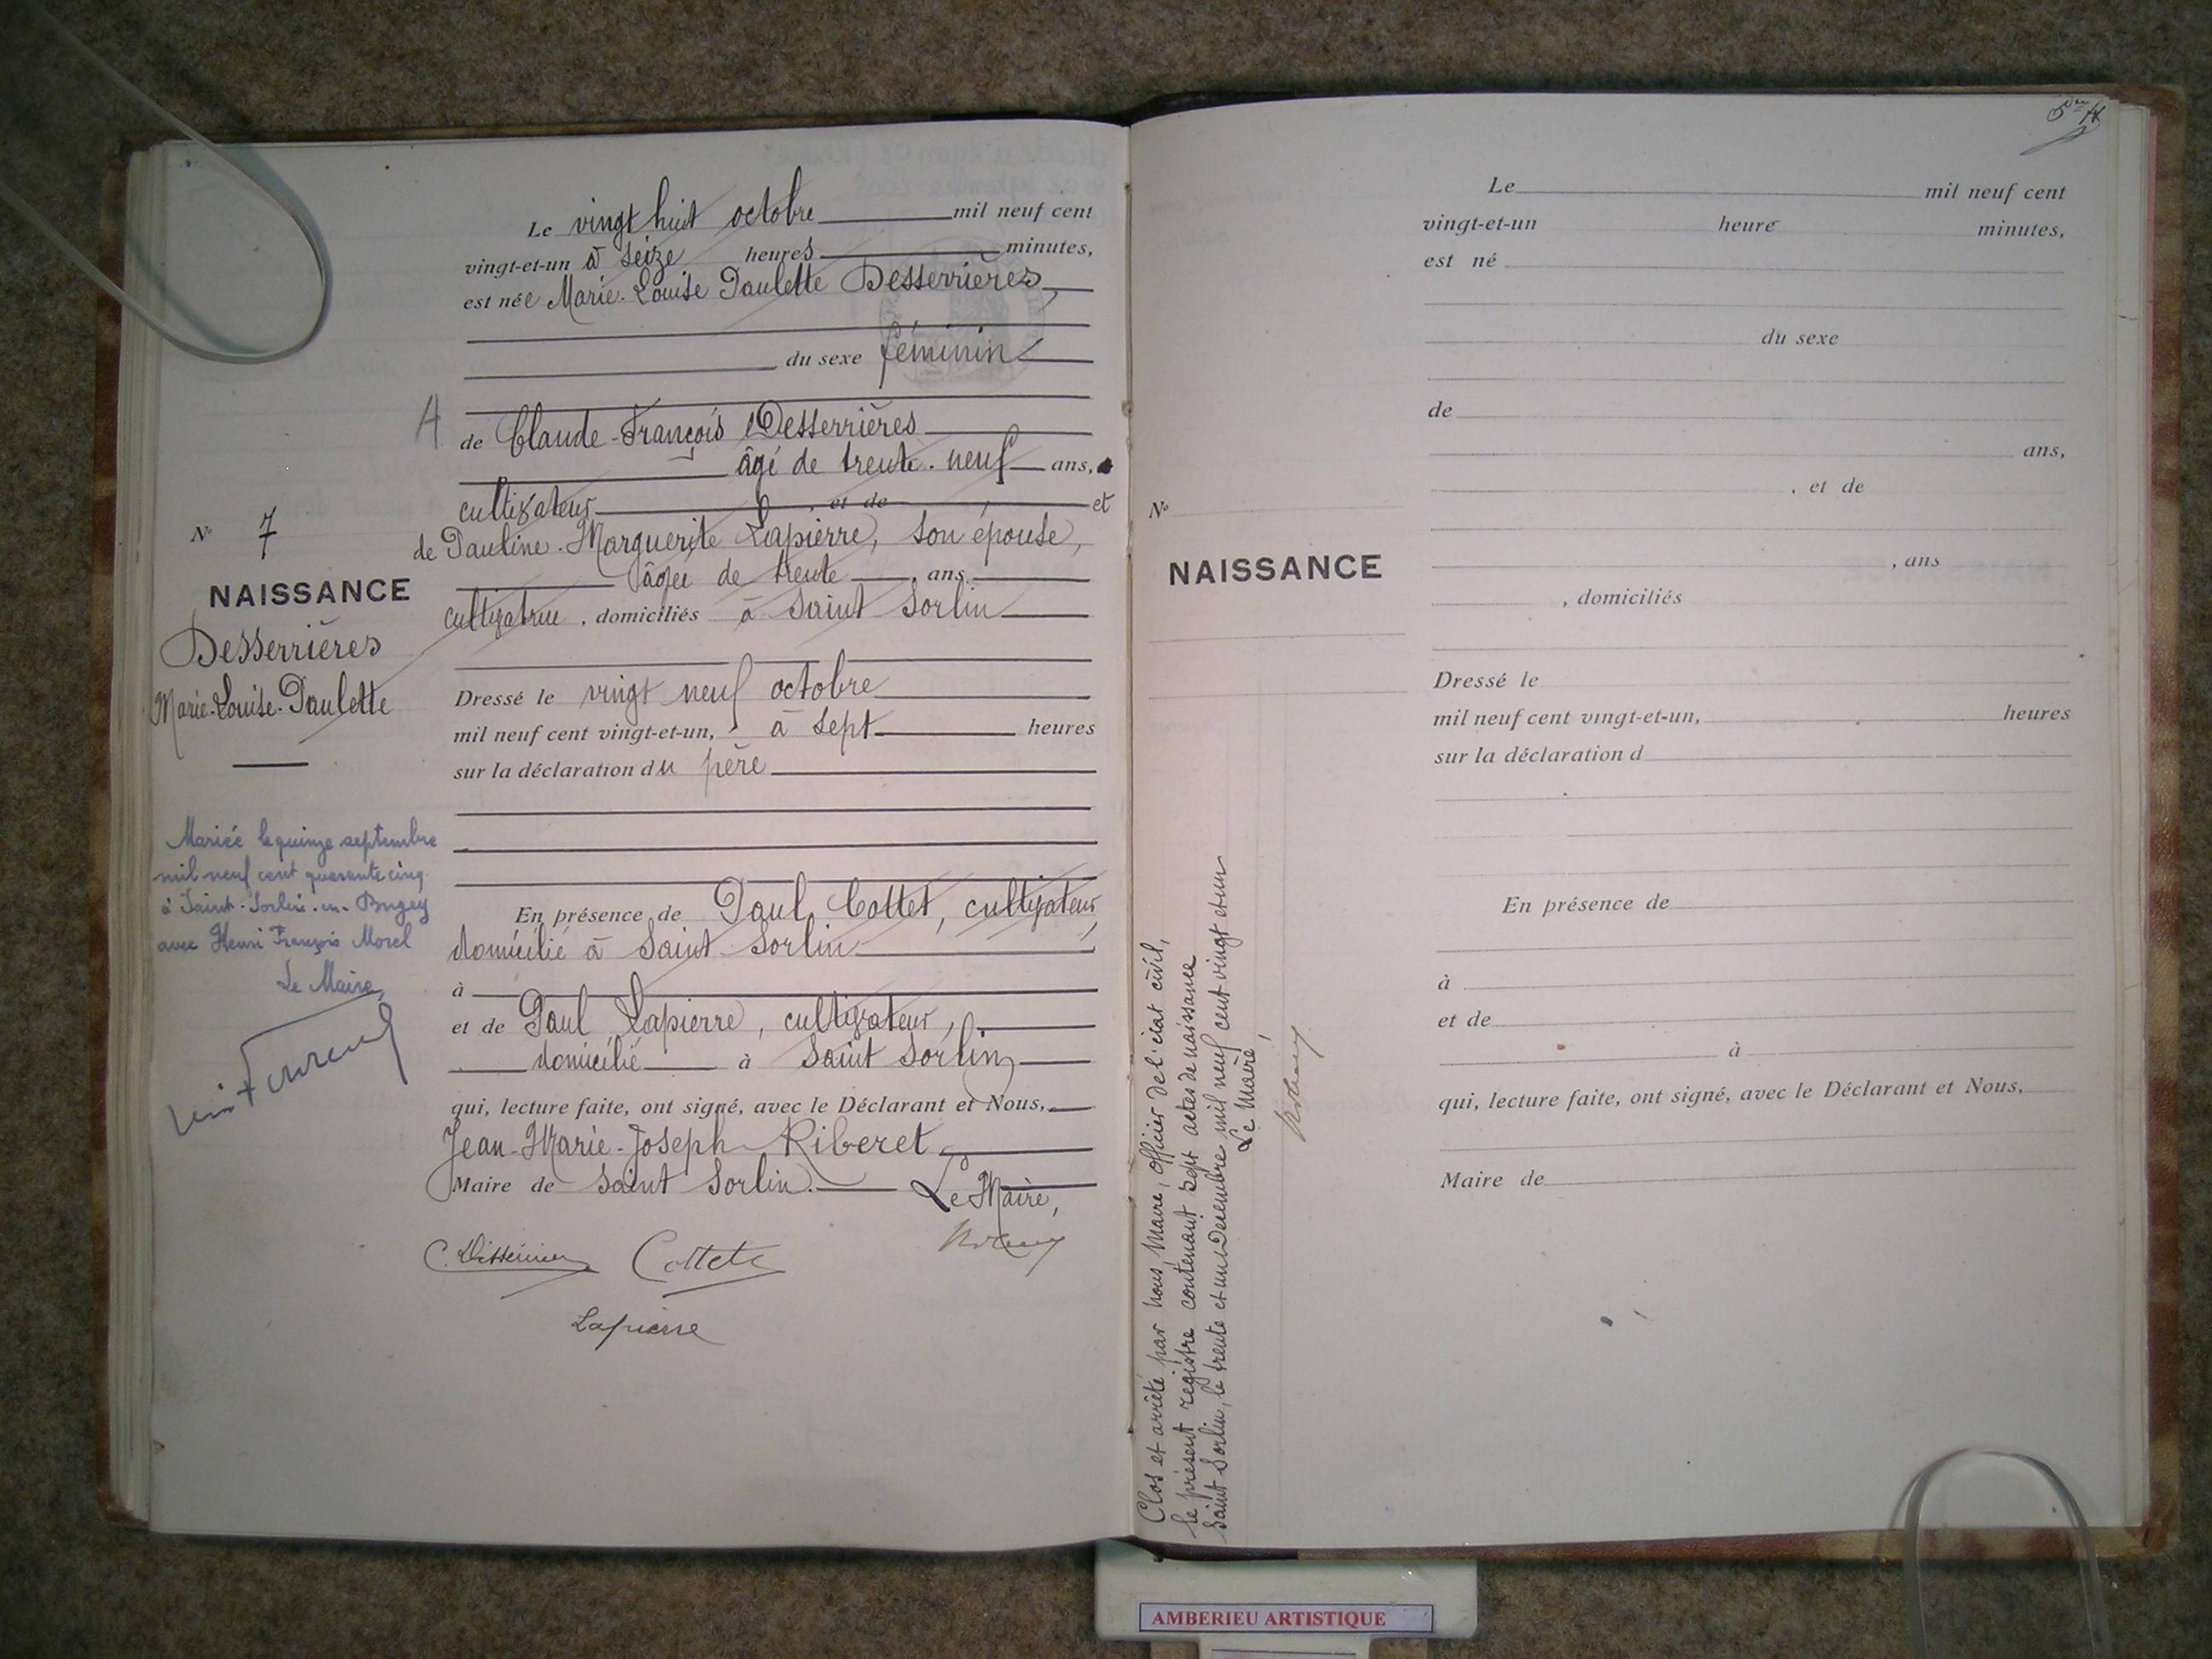 Le vingt huit octobre mil neuf cent
vingt-et-un à seize heures minutes,
est née Marie-Louise Paulette Desserrières,
du sexe féminin
de Claude-François Desserrières
âgé de trente-neuf ans,
cultivateur, et de et
de Pauline-Marguerite Lapierre, son épouse,
âgée de trente, ans
cultivatrice, domiciliés à Saint Sorlin
Dressé le vingt neuf octobre
mil neuf cent vingt-et-un, à sept heures
sur la déclaration du père
En présence de Paul Cottet, cultivateur,
domicilié à Saint Sorlin
à
et de Paul Lapierre, cultivateur,
domicilié à Saint Sorlin
qui, lecture faite, ont signé, avec le Déclarant et Nous,
Jean-Marie-Joseph Riberet
Maire de Saint Sorlin. Le Maire,
Cottet
Lapierre
N° 7
NAISSANCE
Desserrières
Marie-Louise-Paulette
Mariée le quinze septembre
mil neuf cent quarante cinq
à Saint-Sorlin-en-Bugey
avec Henri François Morel
Le Maire,
Clos et arrêté par nous, Maire, officier de l'état civil,
le présent registre contenant sept actes de naissance
Saint Sorlin, le trente et un Décembre mil neuf cent vingt et un
Le Maire,
N°
NAISSANCE
Le mil neuf cent
vingt-et-un heure minutes,
est né
du sexe
de
ans,
, et de
, ans
, domiciliés
Dressé le
mil neuf cent vingt-et-un, heures
sur la déclaration d
En présence de
à
et de
à
qui, lecture faite, ont signé, avec le Déclarant et Nous,
Maire de
AMBERIEU ARTISTIQUE